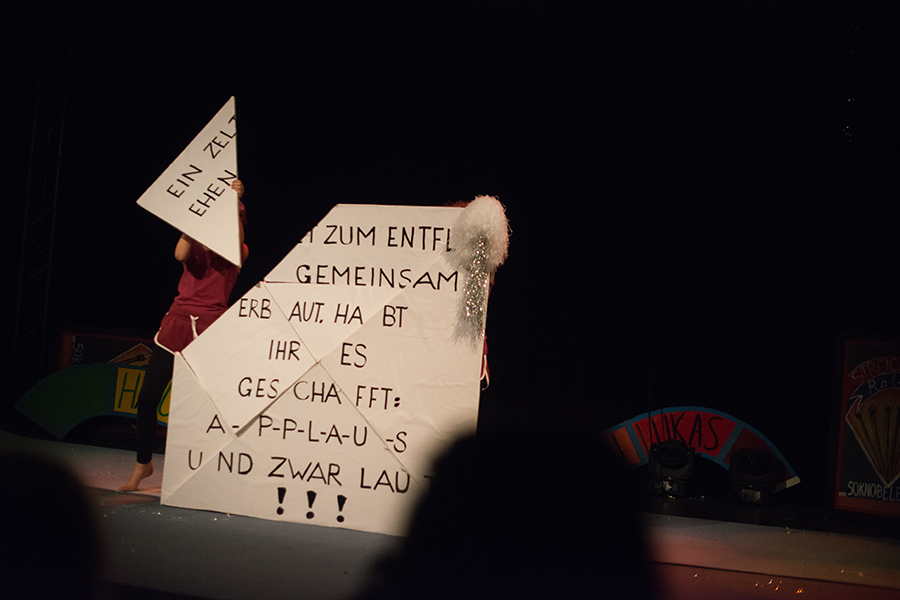 EIN ZELT
EHEN
ZUM ENTFL
GEMEINSAM
ERBAUT, HABT
IHR ES
GESCHAFFT:
A-P-P-L-A-U-S
UND ZWAR LAUT
!!!